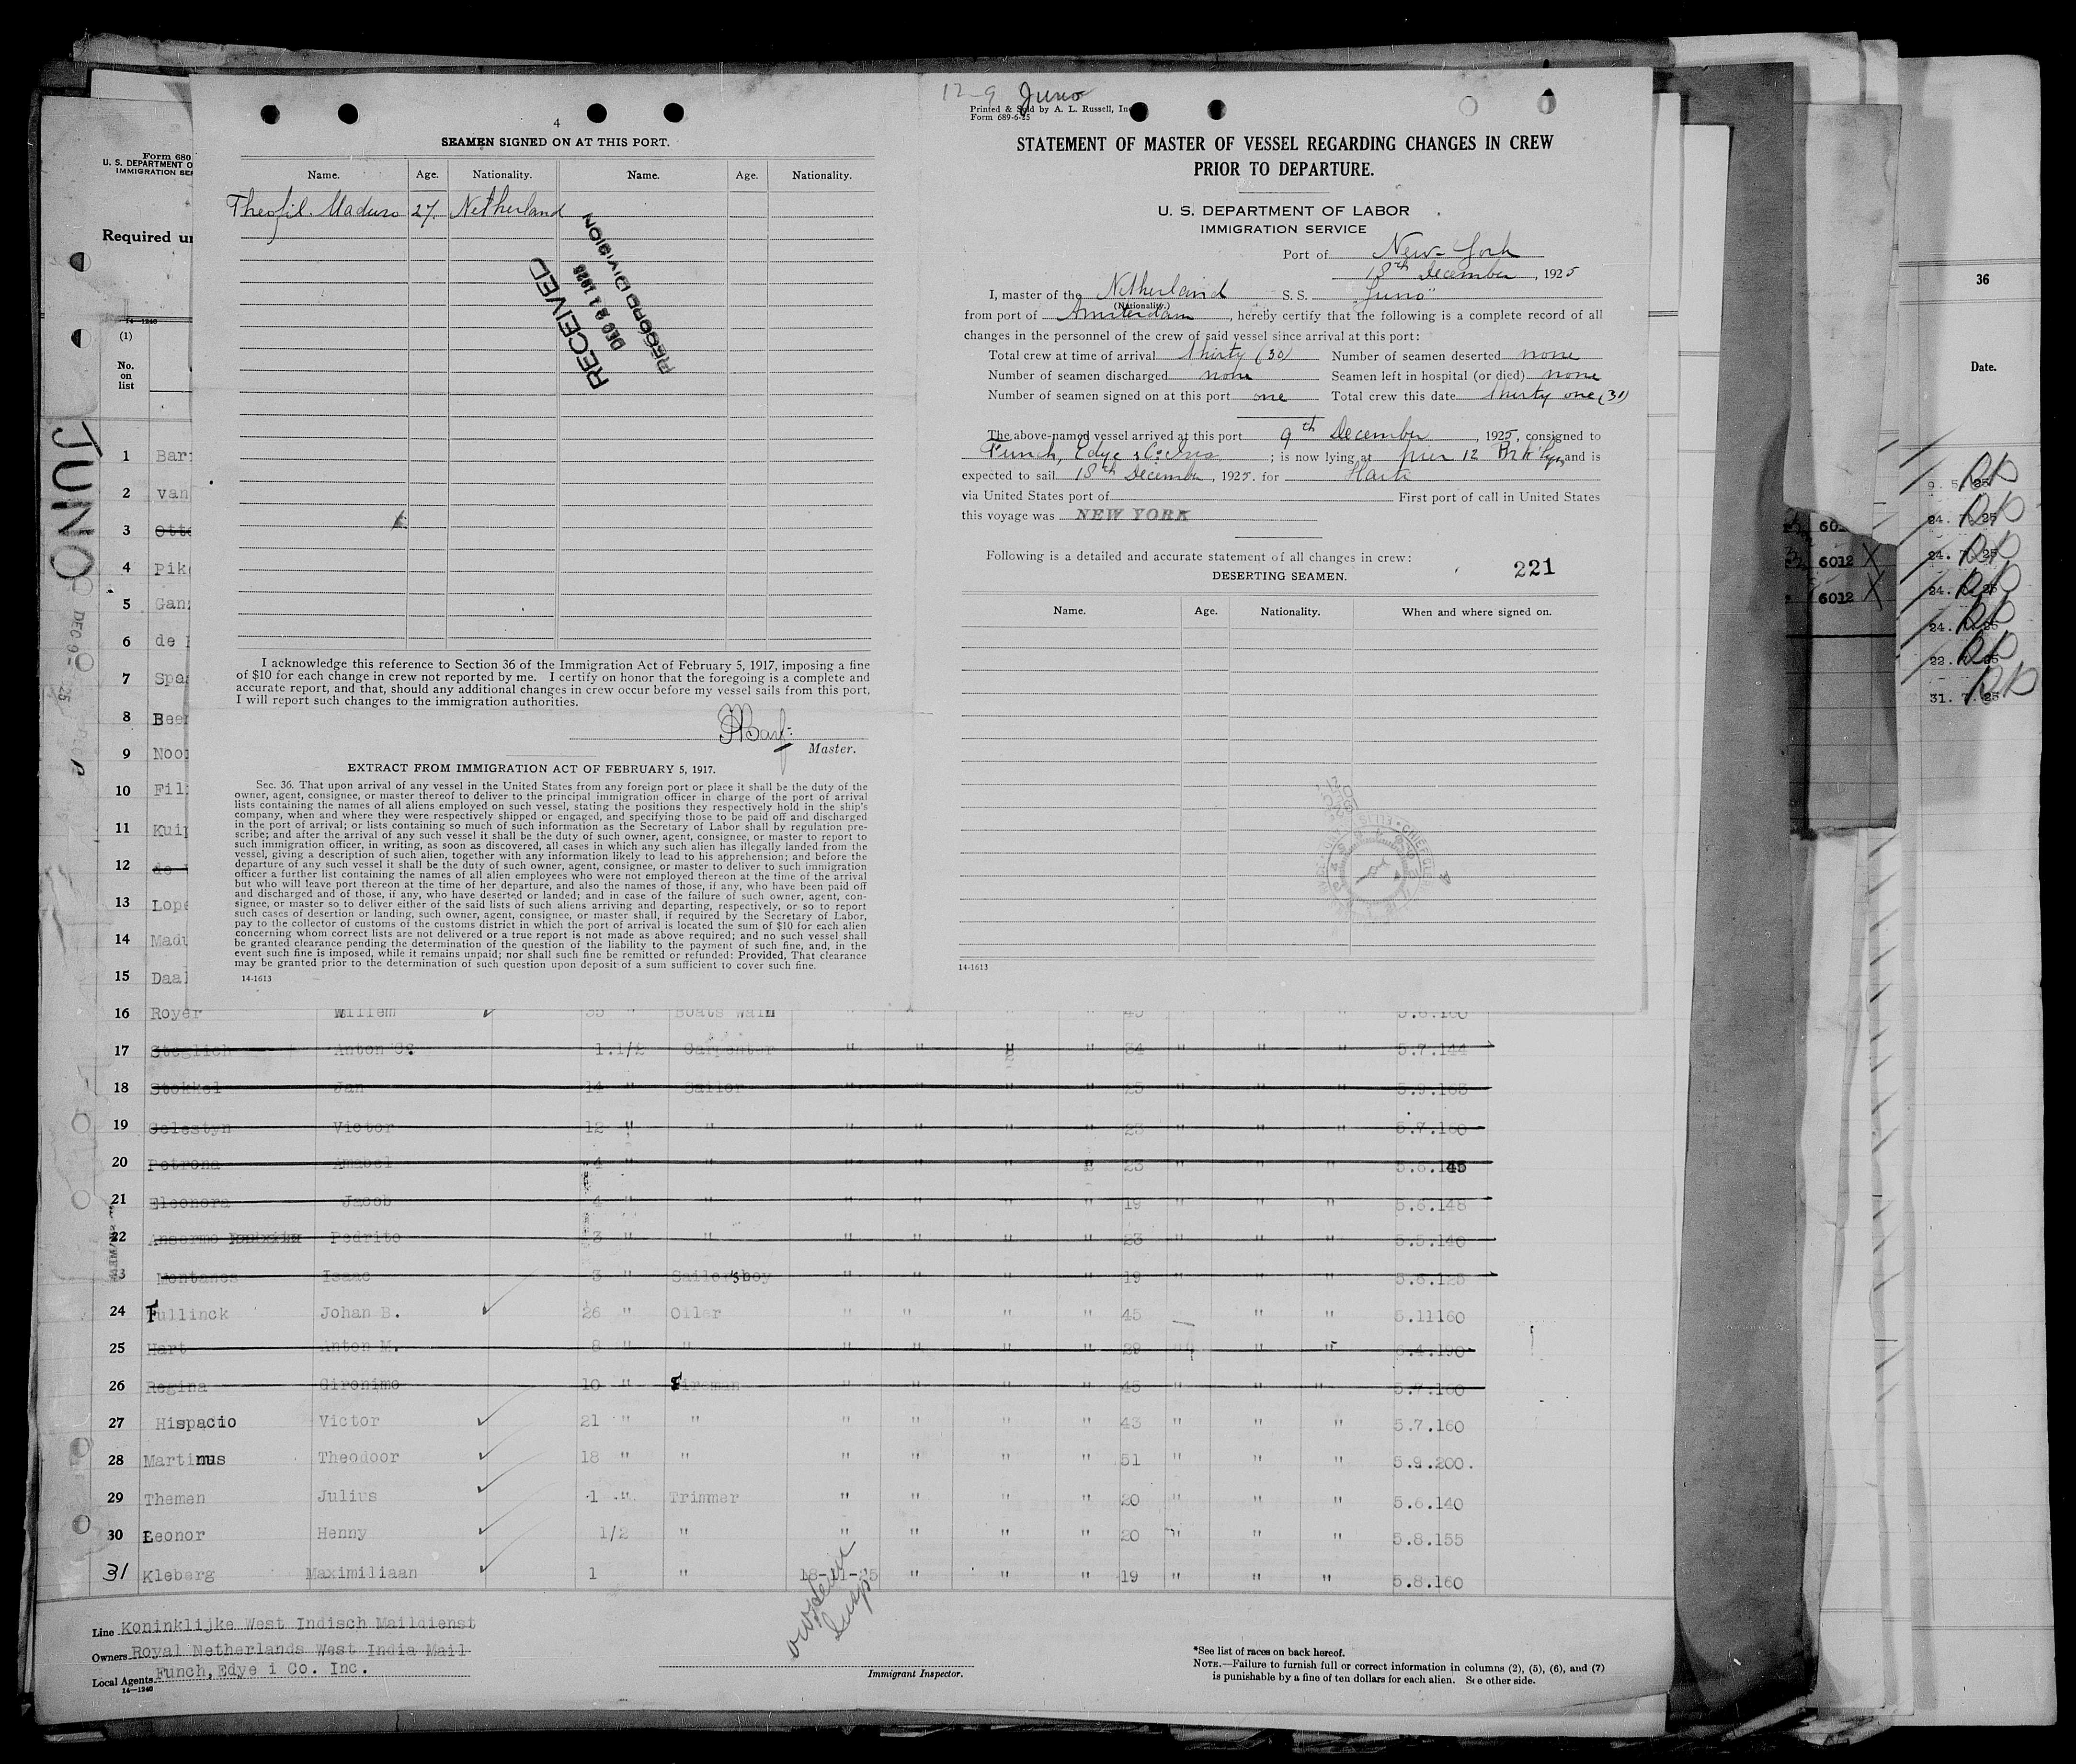 4
SEAMEN SIGNED ON AT THIS PORT.
Name. Age. Nationality. Name. Age. Nationality.
Theofil. Maduro 27. Netherland
RECEIVED
DEC 21 1925
RECORD DIVISION
I acknowledge this reference to Section 36 of the Immigration Act of February 5, 1917, imposing a fine
of $10 for each change in crew not reported by me. I certify on honor that the foregoing is a complete and
accurate report, and that, should any additional changes in crew occur before my vessel sails from this port,
I will report such changes to the immigration authorities.
Master.
EXTRACT FROM IMMIGRATION ACT OF FEBRUARY 5, 1917.
Sec. 36. That upon arrival of any vessel in the United States from any foreign port or place it shall be the duty of the
owner, agent, consignee, or master thereof to deliver to the principal immigration officer in charge of the port of arrival
lists containing the names of all aliens employed on such vessel, stating the positions they respectively hold in the ship's
company, when and where they were respectively shipped or engaged, and specifying those to be paid off and discharged
in the port of arrival; or lists containing so much of such information as the Secretary of Labor shall by regulation pre-
scribe; and after the arrival of any such vessel it shall be the duty of such owner, agent, consignee, or master to report to
such immigration officer, in writing, as soon as discovered, all cases in which any such alien has illegally landed from the
vessel, giving a description of such alien, together with any information likely to lead to his apprehension; and before the
departure of any such vessel it shall be the duty of such owner, agent, consignee, or master to deliver to such immigration
officer a further list containing the names of all alien employees who were not employed thereon at the time of the arrival
but who will leave port thereon at the time of her departure, and also the names of those, if any, who have been paid off
and discharged and of those, if any, who have deserted or landed; and in case of the failure of such owner, agent, con-
signee, or master so to deliver either of the said lists of such aliens arriving and departing, respectively, or so to report
such cases of desertion or landing, such owner, agent, consignee, or master shall, if required by the Secretary of Labor,
pay to the collector of customs of the customs district in which the port of arrival is located the sum of $10 for each alien
concerning whom correct lists are not delivered or a true report is not made as above required; and no such vessel shall
be granted clearance pending the determination of the question of the liability to the payment of such fine, and, in the
event such fine is imposed, while it remains unpaid; nor shall such fine be remitted or refunded: Provided, That clearance
may be granted prior to the determination of such question upon deposit of a sum sufficient to cover such fine.
14-1613
12-9 Juno
Printed & Sold by A. L. Russell, Inc
Form 689-6-25
STATEMENT OF MASTER OF VESSEL REGARDING CHANGES IN CREW
PRIOR TO DEPARTURE.
U. S. DEPARTMENT OF LABOR
IMMIGRATION SERVICE
Port of New-York
18th December, 1925
I, master of the Netherland S. S. "Juno"
(Nationality.)
from port of Amsterdam, hereby certify that the following is a complete record of all
changes in the personnel of the crew of said vessel since arrival at this port:
Total crew at time of arrival thirty (30) Number of seamen deserted none
Number of seamen discharged none Seamen left in hospital (or died) none
Number of seamen signed on at this port one Total crew this date thirty one (31)
The above-named vessel arrived at this port 9th December, 1925, consigned to
Funch, Edye & Co Inc; is now lying at pier 12 Brk'lyn, and is
expected to sail 18th December, 1925. for Haiti
via United States port of First port of call in United States
this voyage was NEW YORK
Following is a detailed and accurate statement of all changes in crew:
DESERTING SEAMEN. 221
Name. Age. Nationality. When and where signed on.
14-1613
Form 680
U. S. DEPARTMENT O
IMMIGRATION SER
Required un
14-1240
(1)
No.
on
list
JUNO
DEC 9- 25
1 Bar
2 van
3 Otto
4 Pik
5 Gan
6 de
7 Spa
8 Bee
9 Noo
10 Fil
11 Kui
12 de
13 Lope
14 Madu
15 Daal
16 Royer Willem 35 " Boats wain " " 45 5.6.160
17 Steglich Anton C. 1.1/2 Carpenter " " " " 34 " " " 5.7.144
18 Stokkel Jan 14 " Sailor " " " " 25 " " " 5.9.163
19 Celestyn Victor 12 " " " " " " 23 " " " 5.7.160
20 Petrona Amabel 4 " " " " " 23 " " " 5.6.145
21 Eleonora Jacob 4 " " " " " " 19 " " " 5.6.148
22 Ansermo Pedrito 3 " " " " " " 23 " " " 5.5.140
23 Montanes Isaac 3 " Sailor'sboy " " " " 19 " " " 5.6.125
24 Fullinck Johan B. 26 " Oilar " " " " 45 " " 5.11160
25 Hart Anton M. 8 " " " " " " 29 " " " 6.4.190
26 Regina Gironimo 10 " Fireman " " " " 45 " " " 5.7.160
27 Hispacio Victor 21 " " " " " " 43 " " " 5.7.160
28 Martinus Theodoor 18 " " " " " " 51 " " " 5.9.200.
29 Themen Julius 1 " Trimmer " " " " 20 " " " 5.6.140
30 Leonor Henny 1/2 " " " " " 20 " " " 5.8.155
31 Kleberg Maximiliaan 1 " 18-11-25 " " " 19 " " " 5.8.160
Line Koninklijke West Indisch Maildienst
Owners Royal Netherlands West India Mail
Local Agents Funch, Edye i Co. Inc.
14-1240
Immigrant Inspector.
*See list of races on back hereof.
NOTE.—Failure to furnish full or correct information in columns (2), (5), (6), and (7)
is punishable by a fine of ten dollars for each alien. See other side.
6012
6012
36
Date.
9. 5. 25
24. 7. 25
24. 7. 25
24. 25
24. 25
22. 25
31. 7. 25